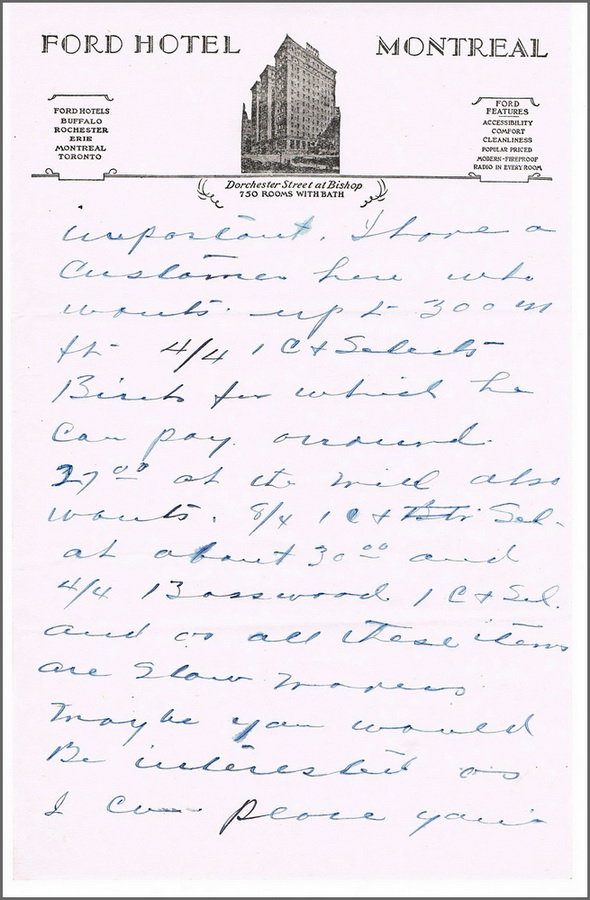 FORD HOTEL MONTREAL
FORD HOTELS
BUFFALO
ROCHESTER
ERIE
MONTREAL
TORONTO
FORD
FEATURES
ACCESSIBILITY
COMFORT
CLEANLINESS
POPULAR PRICED
MODERN-FIREPROOF
RADIO IN EVERY ROOM
Dorchester Street at Bishop
750 ROOMS WITH BATH
important. I have a
Customer here who
wants up to 300 M
ft 4/4 1 C & Selects
Birch for which he
Can pay around
27 00 at the mill also
wants. 8/4 1 C & Btr Sel-
at about 30 00 and
4/4 Basswood 1 C & Sel.
and as all these items
are Slow movers
maybe you would
Be interested as
I Can place your